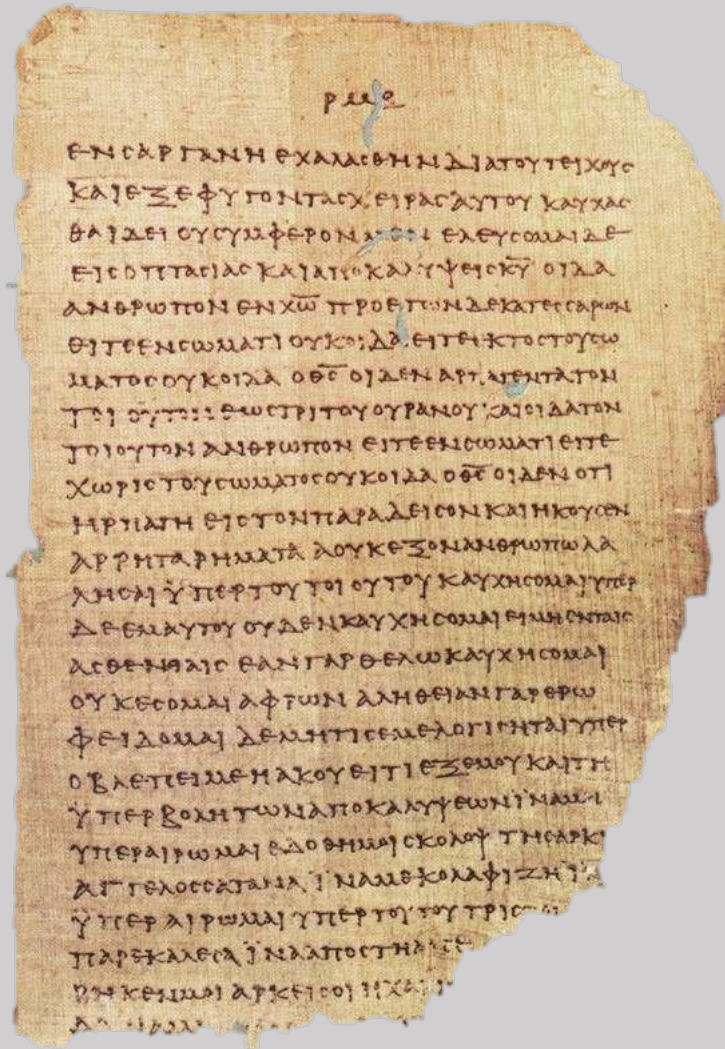 ρμε
ΕΝСΑΡΓΑΝΗ ΕΧΑΛΑСΘΗΝ ΔΙΑΤΟΥΤΕΙΧΟΥС
ΚΑΙ ΕΞΕΦΥΓΟΝΤΑСΧΕΙΡΑСΑΥΤΟΥ ΚΑΥΧΑС
ΘΑΙ ΔΕΙ ΟΥСΥΜΦΕΡΟΝ ΕΛΕΥСΟΜΑΙ ΔΕ
ΕΙСΟΠΤΑСΙΑС ΚΑΙΑΠΟΚΑΛΥΨΕΙСΚ̅Υ̅ ΟΙΔΑ
ΑΝΘΡΩΠΟΝ ΕΝ Χ̅Ω̅ ΠΡΟΕΤΩΝΔΕΚΑΤΕССΑΡΩΝ
ΕΙΤΕΕΝСΩΜΑΤΙ ΟΥΚΟΙΔΑ ΕΙΤΕΕΚΤΟСΤΟΥСΩ
ΜΑΤΟСΟΥΚΟΙΔΑ ΟΘ̅С̅ ΟΙΔΕΝ ΑΡΠΑΓΕΝΤΑΤΟΝ
ΤΟΙΟΥΤΟΝ ΕΩСΤΡΙΤΟΥΟΥΡΑΝΟΥ ΚΑΙΟΙΔΑΤΟΝ
ΤΟΙΟΥΤΟΝ ΑΝΘΡΩΠΟΝ ΕΙΤΕΕΝСΩΜΑΤΙ ΕΙΤΕ
ΧΩΡΙСΤΟΥСΩΜΑΤΟСΟΥΚΟΙΔΑ ΟΘ̅С̅ ΟΙΔΕΝ ΟΤΙ
ΗΡΠΑΓΗ ΕΙСΤΟΝΠΑΡΑΔΕΙСΟΝ ΚΑΙΗΚΟΥСΕΝ
ΑΡΡΗΤΑ ΡΗΜΑΤΑ ΑΟΥΚΕΞΟΝΑΝΘΡΩΠΩΛΑ
ΛΗСΑΙ ΫΠΕΡΤΟΥΤΟΙΟΥΤΟΥ ΚΑΥΧΗСΟΜΑΙΥΠΕΡ
ΔΕΕΜΑΥΤΟΥ ΟΥΔΕΝΚΑΥΧΗСΟΜΑΙ ΕΙΜΗΕΝΤΑΙС
ΑСΘΕΝΕΙΑΙС ΕΑΝΓΑΡΘΕΛΩΚΑΥΧΗСΟΜΑΙ
ΟΥΚΕСΟΜΑΙ ΑΦΡΩΝ ΑΛΗΘΕΙΑΝΓΑΡΕΡΩ
ΦΕΙΔΟΜΑΙ ΔΕΜΗΤΙСΕΜΕΛΟΓΙСΗΤΑΙΥΠΕΡ
ΟΒΛΕΠΕΙΜΕΗΑΚΟΥΕΙΤΙΕΞΕΜΟΥ ΚΑΙΤΗ
ΫΠΕΡΒΟΛΗΤΩΝΑΠΟΚΑΛΥΨΕΩΝΪΝΑΜ
ΥΠΕΡΑΙΡΩΜΑΙ ΕΔΟΘΗΜΟΙСΚΟΛΟΨ ΤΗСΑΡΚΙ
ΑΓΓΕΛΟССΑΤΑΝΑ ΪΝΑΜΕΚΟΛΑΦΙΖΗ
ΫΠΕΡΑΙΡΩΜΑΙ ΥΠΕΡΤΟΥΤΟΥ ΤΡΙС
ΠΑΡΕΚΑΛΕСΑ ΪΝΑΑΠΟСΤΗ
ΡΗΚΕΝΜΟΙ ΑΡΚΕΙСΟΙ ΗΧΑΡΙ